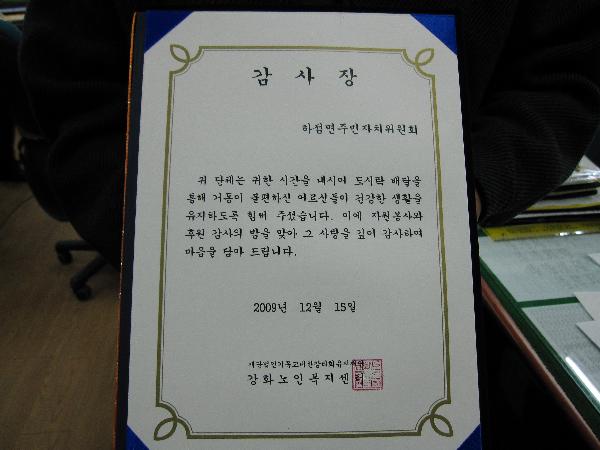 감 사 장
하점면주민자치위원회
귀 단체는 귀한 시간을 내시어 도시락 배달을
통해 거동이 불편하신 어르신들이 건강한 생활을
유지하도록 힘써 주셨습니다. 이에 자원봉사와
후원 감사의 밤을 맞아 그 사랑을 깊이 감사하며
마음을 담아 드립니다.
2009년 12월 15일
재단법인기독교대한감리회유지재단
강화노인복지센